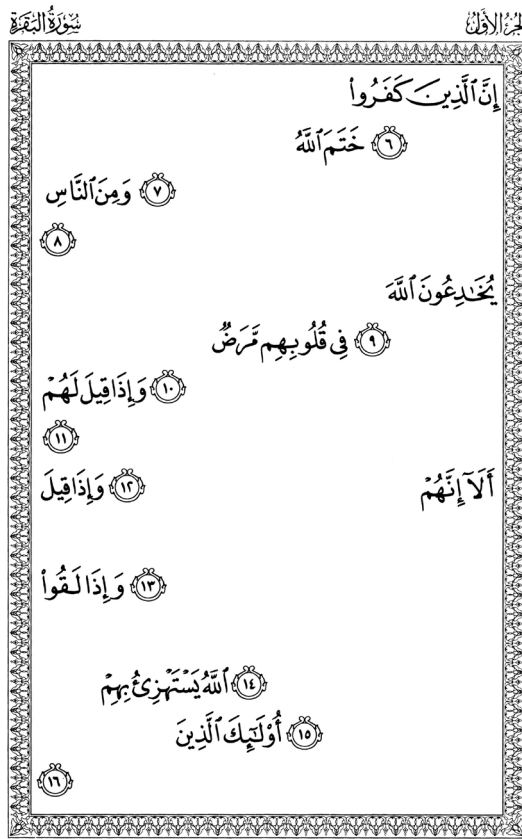 الجزء الأول سورة البقرة
إِنَّ ٱلَّذِينَ كَفَرُوا۟
٦ خَتَمَ ٱللَّهُ
٧ وَمِنَ ٱلنَّاسِ
٨
يُخَـٰدِعُونَ ٱللَّهَ
٩ فِى قُلُوبِهِم مَّرَضٌ
١٠ وَإِذَا قِيلَ لَهُمْ
١١
أَلَآ إِنَّهُمْ ١٢ وَإِذَا قِيلَ
١٣ وَإِذَا لَقُوا۟
١٤ ٱللَّهُ يَسْتَهْزِئُ بِهِمْ
١٥ أُو۟لَـٰٓئِكَ ٱلَّذِينَ
١٦